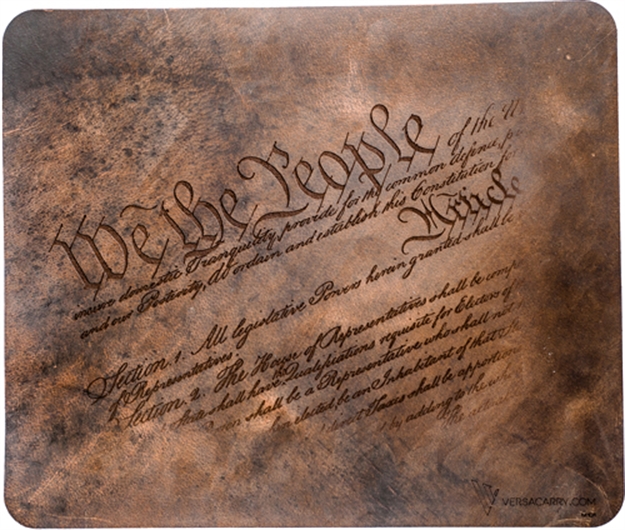 We the People of the U
insure domestic Tranquility, provide for the common defence, pr
and our Posterity, do ordain and establish this Constitution for
Article
Section 1. All legislative Powers herein granted shall be
of Representatives.
Section 2. The House of Representatives shall be comp
shall have Qualifications requisite for Electors of
shall be a Representative who shall not
elected, be an Inhabitant of that
shall be apportion
by adding to the who
VERSACARRY.COM